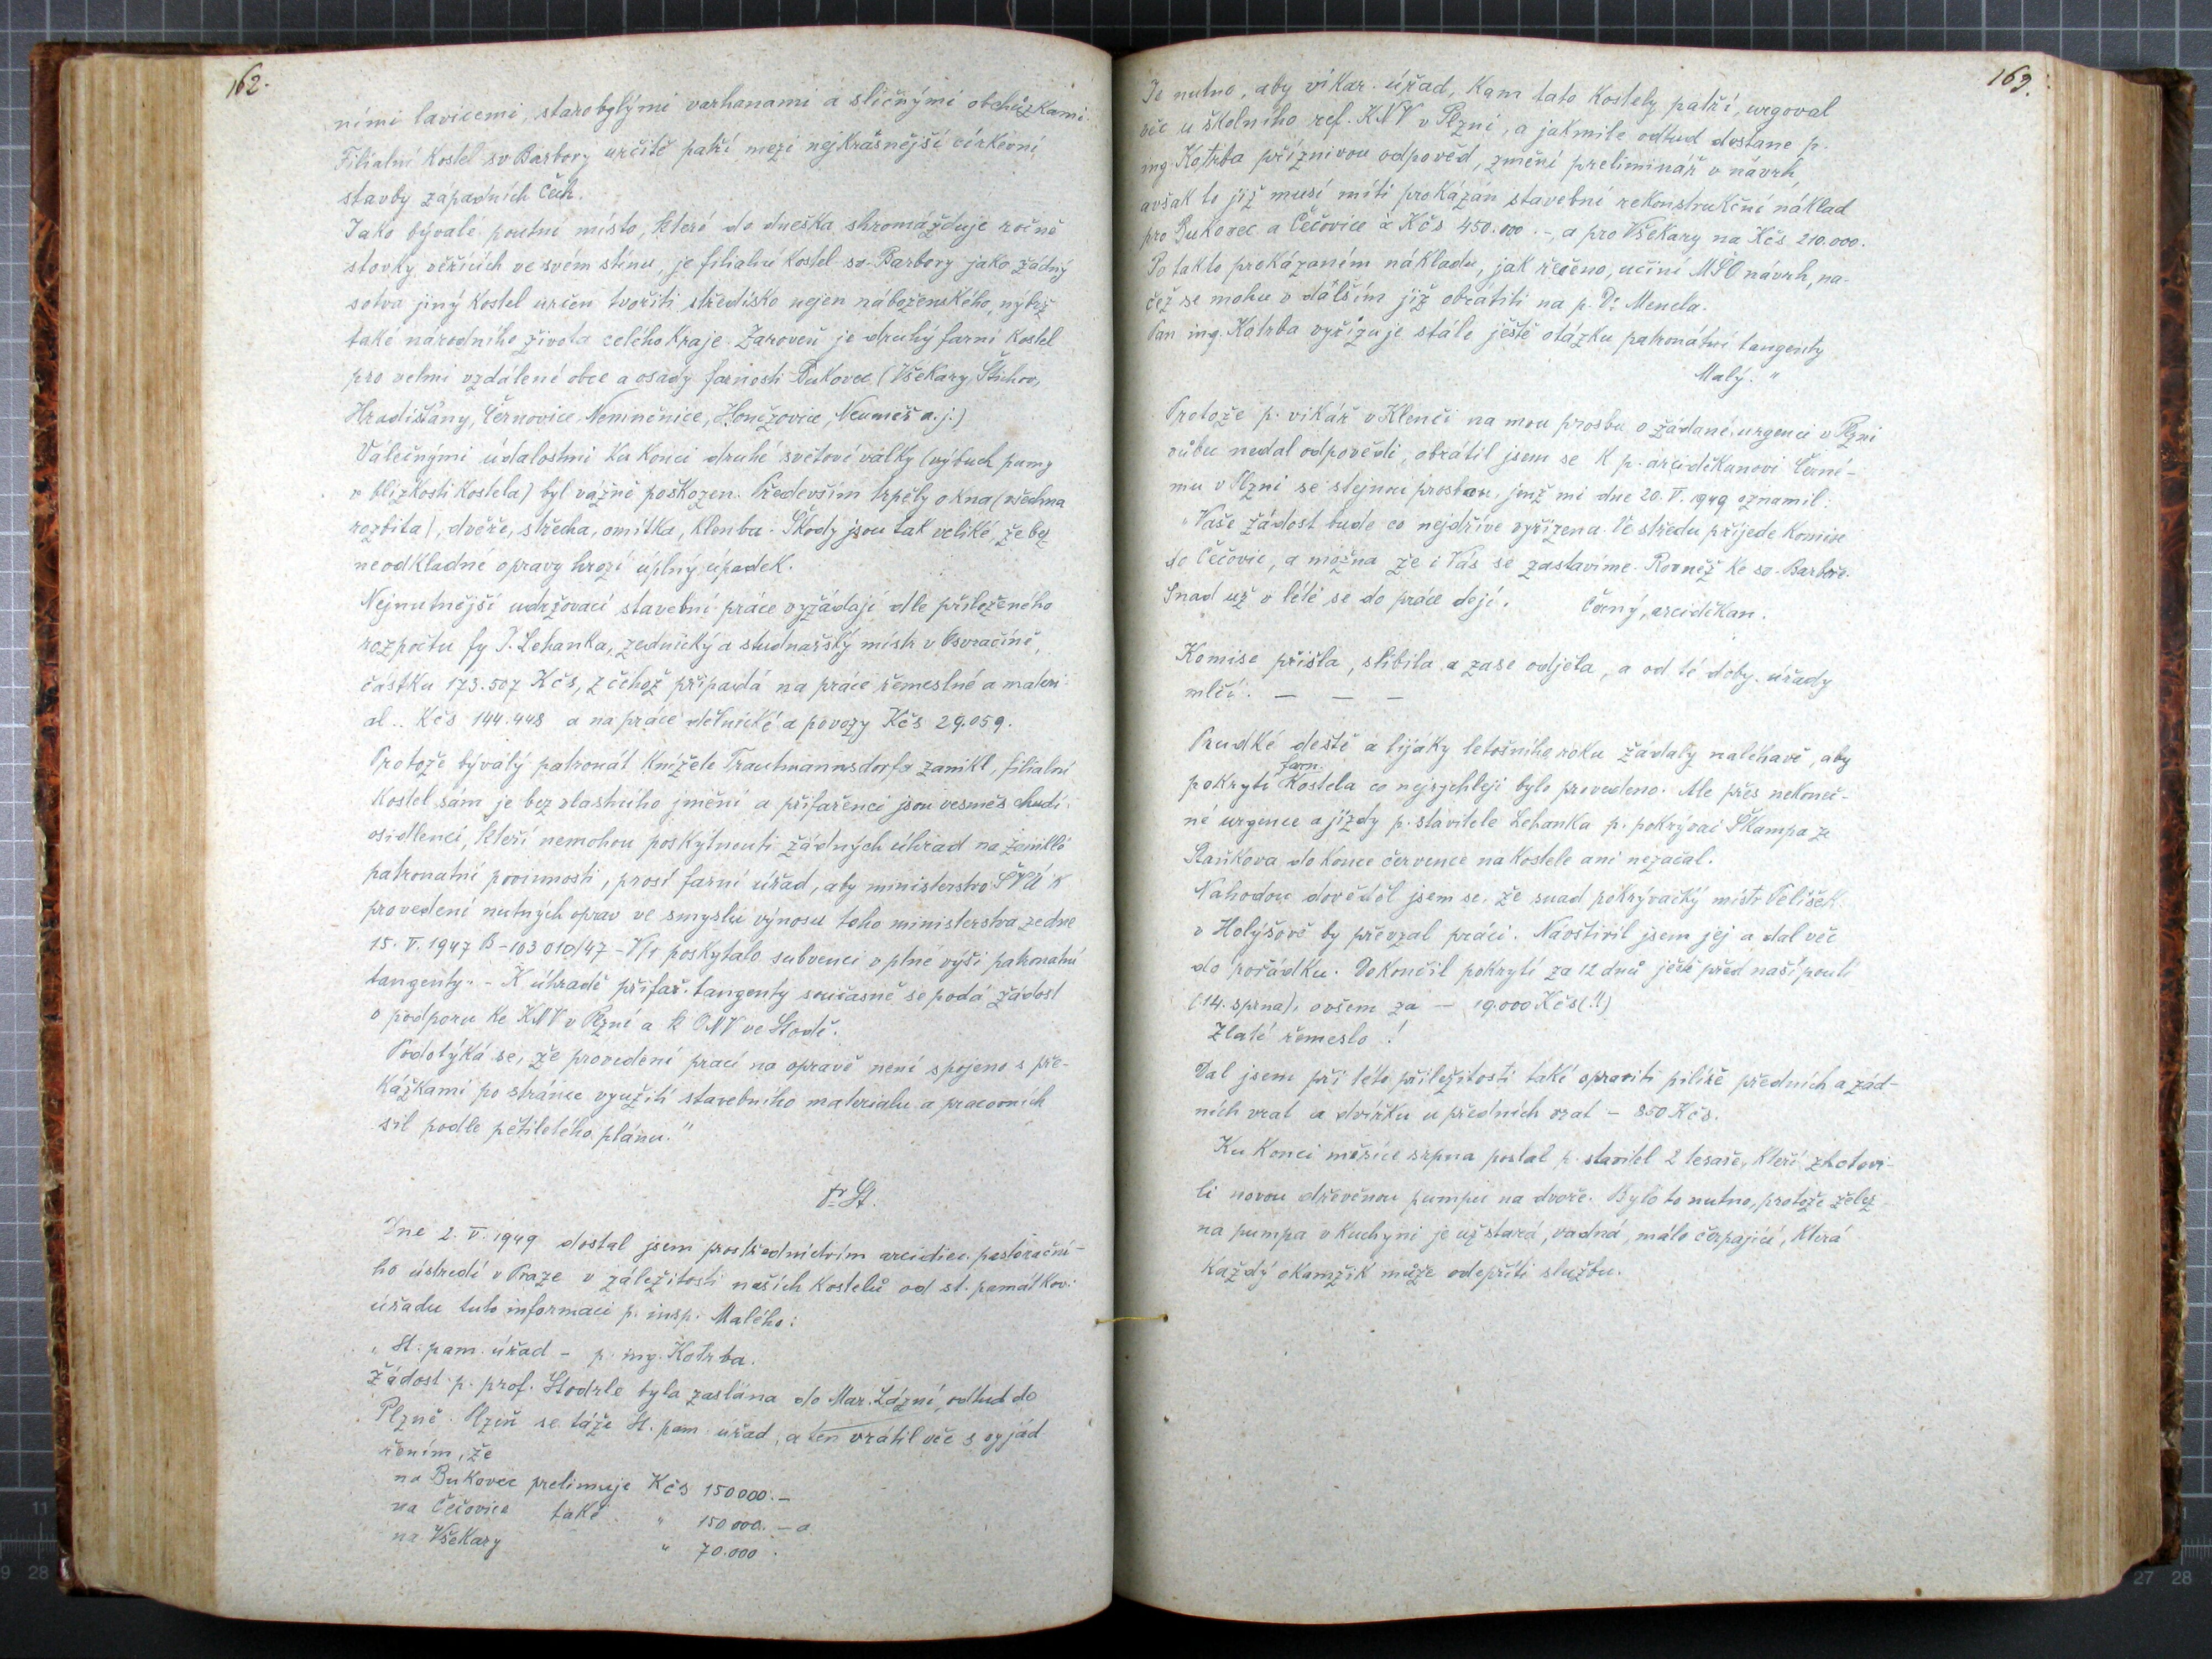 162.
ními lavicemi, starobylými varhanami a sličnými obchůzkami.
Filialní kostel sv Barbory určitě patří mezi nejkrásnější církevní
stavby západních Čech.
Jako bývalé poutní místo, které do dneška shromážďuje ročně
stovky věřících ve svém stínu, je filialní kostel sv. Barbory jako žádný
sotva jiný kostel určen tvořiti středisko nejen náboženského, nýbrž
také národního života celého kraje. Zároveň je druhý farní kostel
pro velmi vzdálené obce a osady farnosti Bukovec (Všekary, Štichov,
Hradišťany, Černovice, Nemněnice, Honězovice, Neuměř a. j.)
Válečnými událostmi ku konci druhé světové války (výbuch pumy
v blízkosti kostela) byl vážně poškozen. Především trpěly okna (všechna
rozbita), dvéře, střecha, omítka, klenba. Škody jsou tak veliké, že bez
neodkladné opravy hrozí úplný úpadek.
Nejnutnější udržovací stavební práce vyžádají dle přiloženého
rozpočtu fy J. Lehanka, zednický a studnařský mistr v Osvračíně,
částku 173.507 Kčs, z čehož připadá na práce řemeslné a materi-
al .. Kčs 144.448 a na práce dělnické a povozy Kčs 29.059.
Protože bývalý patronát knížete Trautmannsdorfa zanikl, filialní
kostel sám je bez vlastního jmění a přifařenci jsou vesměs chudí
osidlenci, kteří nemohou poskytnouti žádných úhrad na zaniklé
patronatní povinnosti, prosí farní úřad, aby ministerstvo ŠVU k
provedení nutných oprav ve smyslu výnosu toho ministerstva ze dne
15. V. 1947 B-103 010/47-V/1 poskytalo subvenci v plné výši patronatní
tangenty. - K úhradě přifař. tangenty současně se podá žádost
o podporu ke KNV v Plzni a k ONV ve Stodě.
Podotýká se, že provedení prací na opravě není spojeno s pře-
kážkami po stránce využití stavebního materialu a pracovních
sil podle pětiletého plánu."
Dr St.
Dne 2. V. 1949 dostal jsem prostřednictvím arcidiec. pastorační-
ho ústředí v Praze v záležitosti našich kostelů od st. památkov.
úřadu tuto informaci p. insp. Malého:
„St. pam. úřad - p. ing. Kotrba.
Žádost p. prof. Stodrle byla zaslána do Mar. Lázní, odtud do
Plzně. Plzeň se táže St. pam. úřad, a ten vrátil věc s vyjád
řením, že
na Bukovec prelimuje Kčs 150 000.-
na Čečovice také " 150 000. - a
na Všekary " 70.000.
163.
Je nutno, aby vikar. úřad, kam tato kostely patří, urgoval
věc u školního ref. KNV v Plzni, a jakmile odtud dostane p.
ing. Kotrba příznivou odpověd, změní preliminář v návrh,
avšak to již musí míti prokázán stavební rekonstrukční náklad
pro Bukovec a Čečovice à Kčs 450.000.-, a pro Všekary na Kčs 210.000.
Po takto prokázaném nákladu, jak řečeno, učiní MŠO návrh, na-
čež se mohu v dalším již obrátiti na p. Dr Mencla.
Pan ing. Kotrba vyřizuje stále ještě otázku patronátní tangenty
Malý."
Protože p. vikář v Klenčí na mou prosbu o žádané urgenci v Plzni
vůbec nedal odpovědi, obrátil jsem se k p. arciděkanovi Černé-
mu v Plzni se stejnou prosbou, jenž mi dne 20. V. 1949 oznamil:
„Vaše žádost bude co nejdříve vyřízena. Ve středu přijede komise
do Čečovic, a možna že i Vás se zastavíme. Rovněž ke sv. Barboře.
Snad už v létě se do práce dejí. Černý, arciděkan.
Komise přišla, slíbila a zase odjela, a od té doby úřady
mlčí. - - -
Prudké deště a lijáky letošního roku žádaly naléhavě, aby
farn.
pokrytí kostela co nejrychleji bylo provedeno. Ale přes nekoneč-
né urgence a jízdy p. stavitele Lehanka p. pokrývač Škampa ze
Staňkova do konce července na kostele ani nezačal.
Nahodou dověděl jsem se, že snad pokrývačký mistr Pelíšek
v Holýšově by převzal práci. Navštívil jsem jej a dal věc
do pořádku. Dokončil pokrytí za 12 dnů ještě před naší poutí
(14. srpna), ovšem za - 19.000 Kčs (!!)
Zlaté řemeslo!
Dal jsem při této příležitosti také opraviti pilíře předních a zád-
ních vrat a dvířku u předních vrat - 850 Kčs.
Ku konci měsíce srpna poslal p. stavitel 2 tesaře, kteří zhotovi-
li novou dřevěnou pumpu na dvoře. Bylo to nutno, protože želez-
na pumpa v kuchyni je už stará, vadná, málo čerpající, která
každý okamžik může odepříti službu.